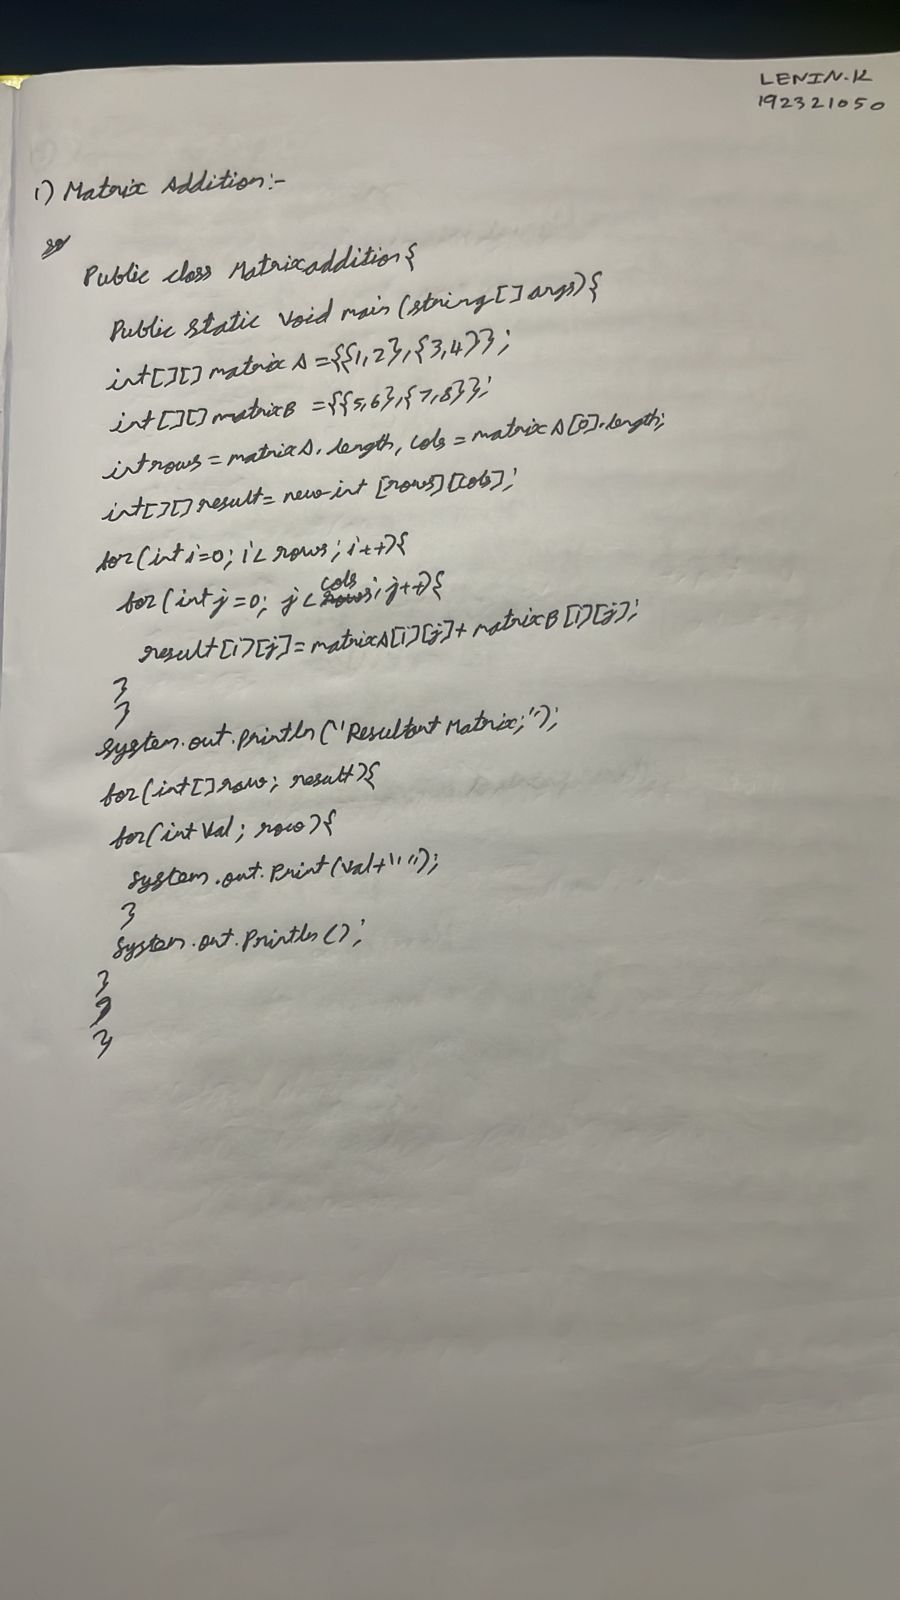 LENIN.K
192321050
1) Matrix Addition:-
Public class Matrixaddition{
Public static void main (string[] args){
int[][] matrix A ={{1,2},{3,4}};
int[][] matrixB ={{5,6},{7,8}};
int rows = matrixA.length, cols = matrixA[0].length;
int[][] result= new int [rows][cols];
for(int i=0; i< rows; i++){
for(int j=0; j< cols; j++){
result[i][j]= matrixA[i][j]+ matrixB[i][j];
}
}
system.out.println("Resultant Matrix;");
for(int[] row; result){
for(int val; row){
system.out.Print(val+" ");
}
system.out.Println();
}
}
}